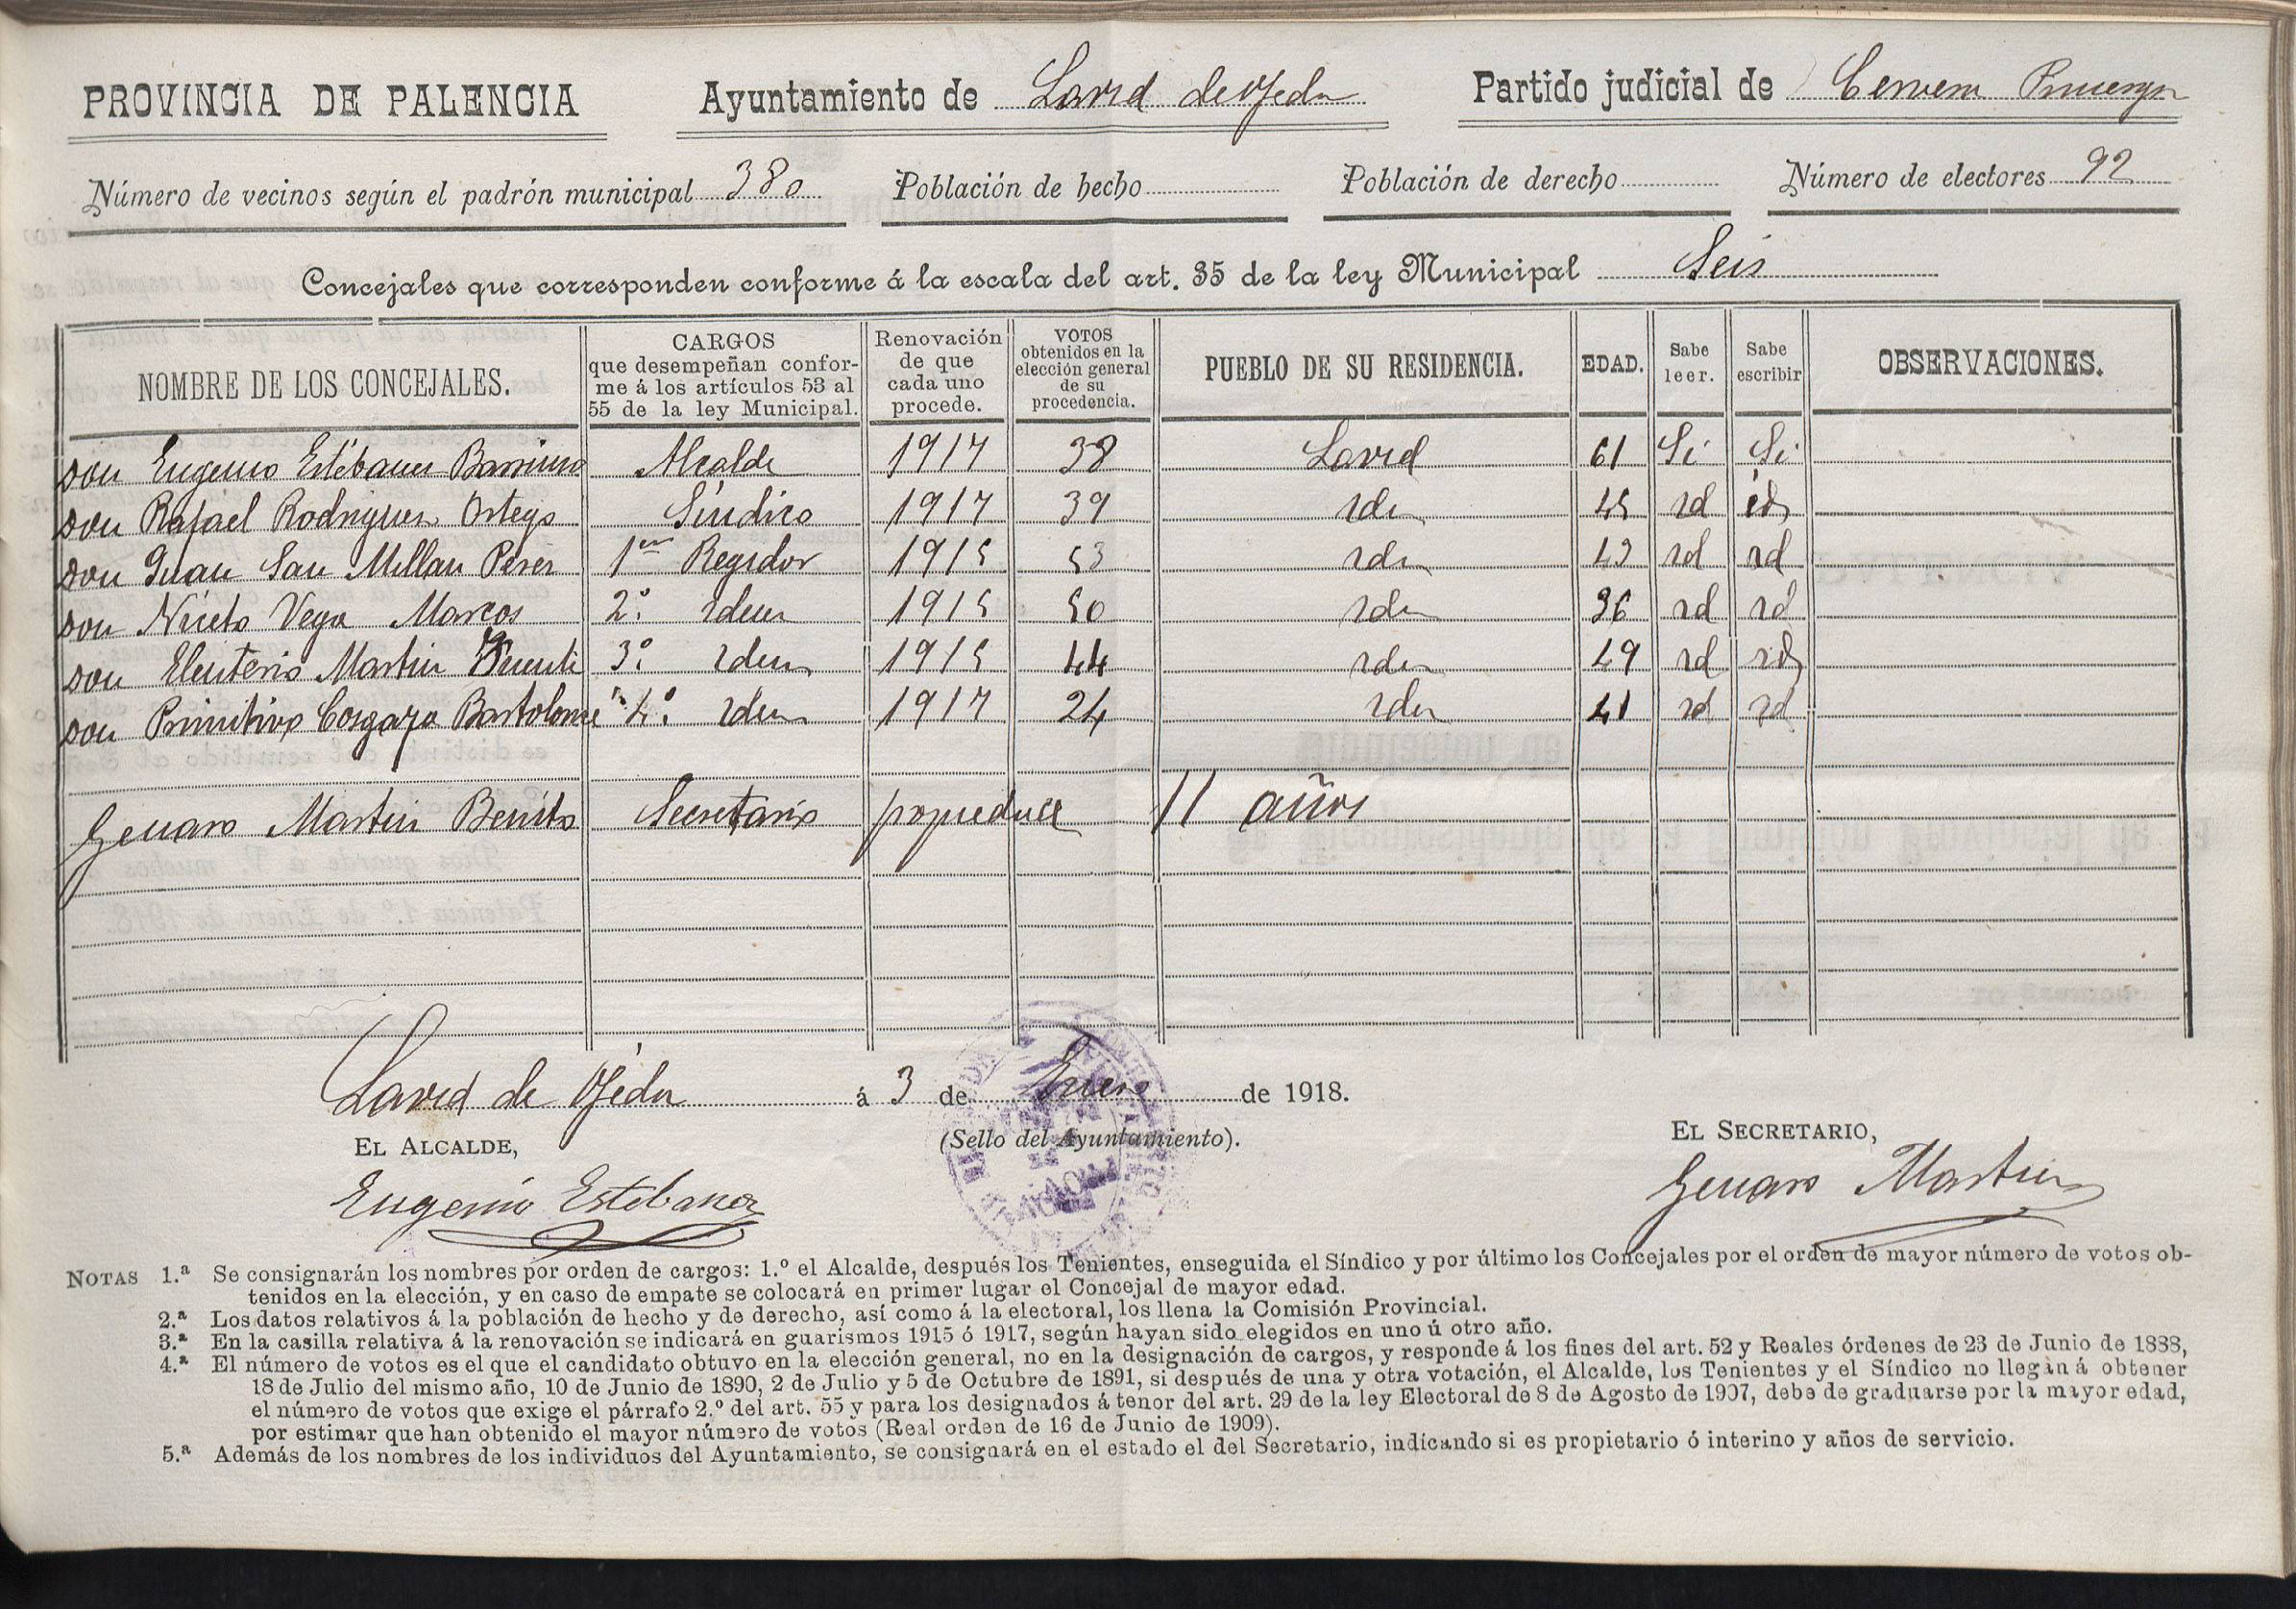 PROVINCIA DE PALENCIA Ayuntamiento de Lavid de Ojeda Partido judicial de Cervera Pisuerga
Número de vecinos según el padrón municipal 380 Población de hecho Población de derecho Número de electores 92
Concejales que corresponden conforme á la escala del art. 35 de la ley Municipal Seis
NOMBRE DE LOS CONCEJALES. CARGOS que desempeñan conforme á los artículos 53 al 55 de la ley Municipal. Renovación de que cada uno procede. VOTOS obtenidos en la elección general de su procedencia. PUEBLO DE SU RESIDENCIA. EDAD. Sabe leer. Sabe escribir OBSERVACIONES.
Don Eugenio Estébanez Barriuso Alcalde 1917 38 Lavid 61 Si Si
Don Rafael Rodriguez Ortega Síndico 1917 39 idm 45 id id
Don Juan San Millan Perez 1er Regidor 1915 53 idm 43 id id
Don Niceto Vega Marcos 2º idem 1915 50 idm 36 id id
Don Eleuterio Martin Fuente 3º idem 1915 44 idm 49 id id
Don Primitivo Cosgaya Bartolomé 4º idem 1917 24 idm 41 id id
Genaro Martin Benito Secretario 11 años
Lavid de Ojeda á 3 de Enero de 1918.
(Sello del Ayuntamiento).
EL ALCALDE, EL SECRETARIO,
Eugenio Estebanez Genaro Martin
NOTAS 1.ª Se consignarán los nombres por orden de cargos: 1.º el Alcalde, después los Tenientes, enseguida el Síndico y por último los Concejales por el orden de mayor número de votos ob-
tenidos en la elección, y en caso de empate se colocará en primer lugar el Concejal de mayor edad.
2.ª Los datos relativos á la población de hecho y de derecho, así como á la electoral, los llena la Comisión Provincial.
3.ª En la casilla relativa á la renovación se indicará en guarismos 1915 ó 1917, según hayan sido elegidos en uno ú otro año.
4.ª El número de votos es el que el candidato obtuvo en la elección general, no en la designación de cargos, y responde á los fines del art. 52 y Reales órdenes de 23 de Junio de 1888,
18 de Julio del mismo año, 10 de Junio de 1890, 2 de Julio y 5 de Octubre de 1891, si después de una y otra votación, el Alcalde, los Tenientes y el Síndico no llegan á obtener
el número de votos que exige el párrafo 2.º del art. 55 y para los designados á tenor del art. 29 de la ley Electoral de 8 de Agosto de 1907, debe de graduarse por la mayor edad,
por estimar que han obtenido el mayor número de votos (Real orden de 16 de Junio de 1909).
5.ª Además de los nombres de los individuos del Ayuntamiento, se consignará en el estado el del Secretario, indicando si es propietario ó interino y años de servicio.